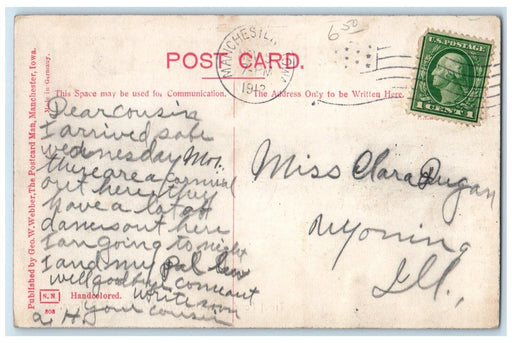 6 50
POST CARD.
MANCHESTER IOWA
PM
191
U.S. POSTAGE
1 CENT 1
This Space may be used for Communication.
The Address Only to be Written Here.
Dear cousin
I arrived safe
wednesday Mor.
there are a carnival
out here. they
have a lot of
dances out here
I am going to night
I and my pal
well good bye
write soon
your cousin
a H.
Miss Clara Dugan
Wyoming
Ill.,
Published by Geo. W. Webber, The Postcard Man, Manchester, Iowa.
Made in Germany.
S.N
Handcolored.